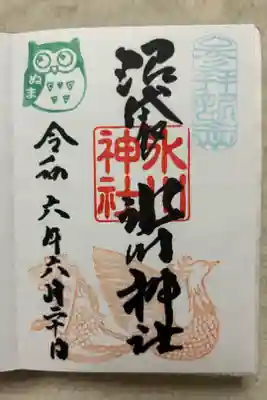 沼袋氷川神社
氷川
神社
ぬま
令和六年六月二十日